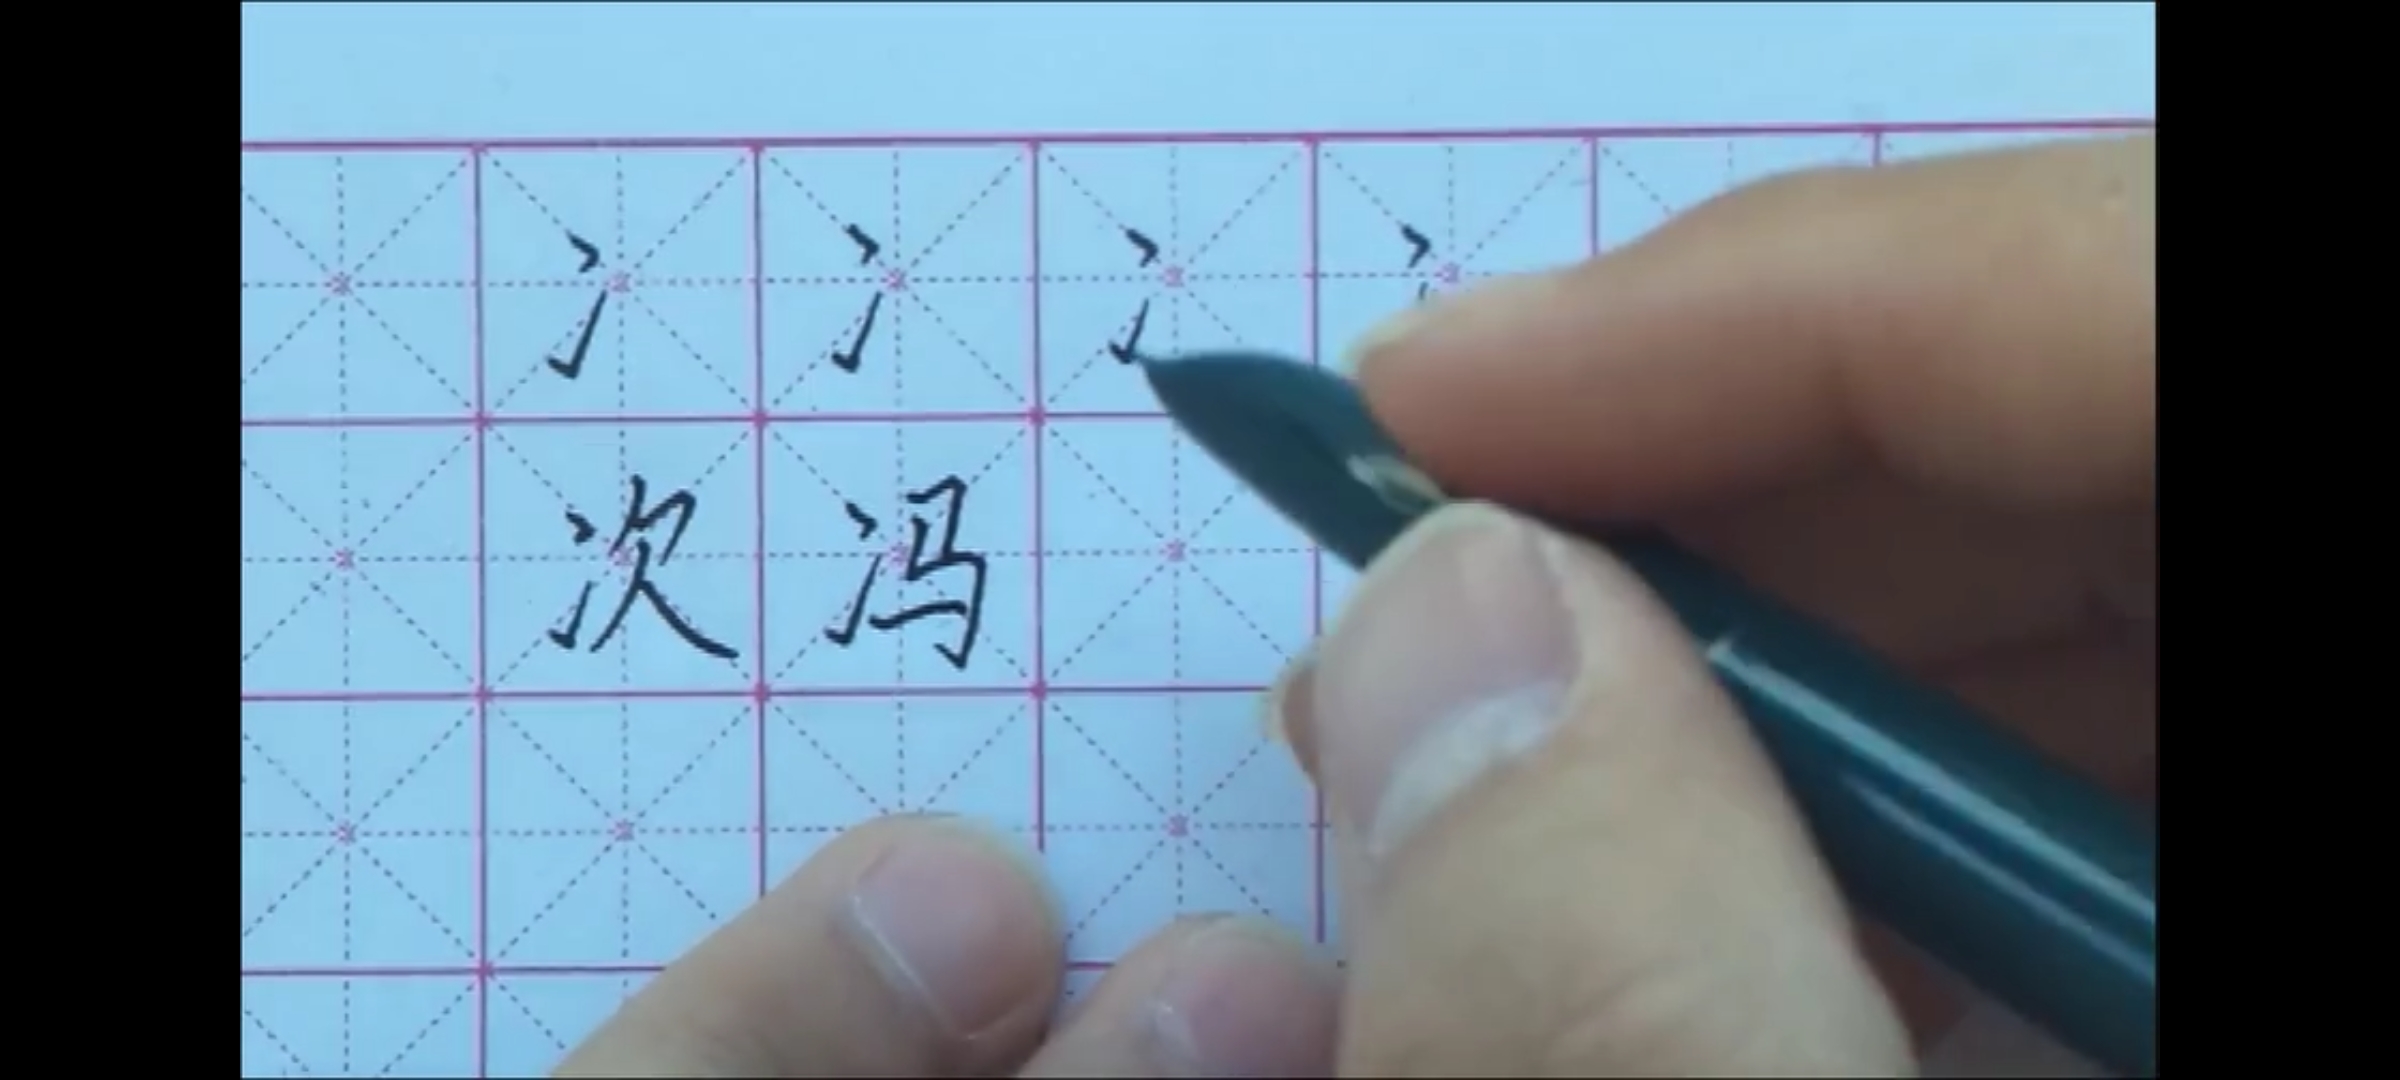 冫冫冫冫
次冯